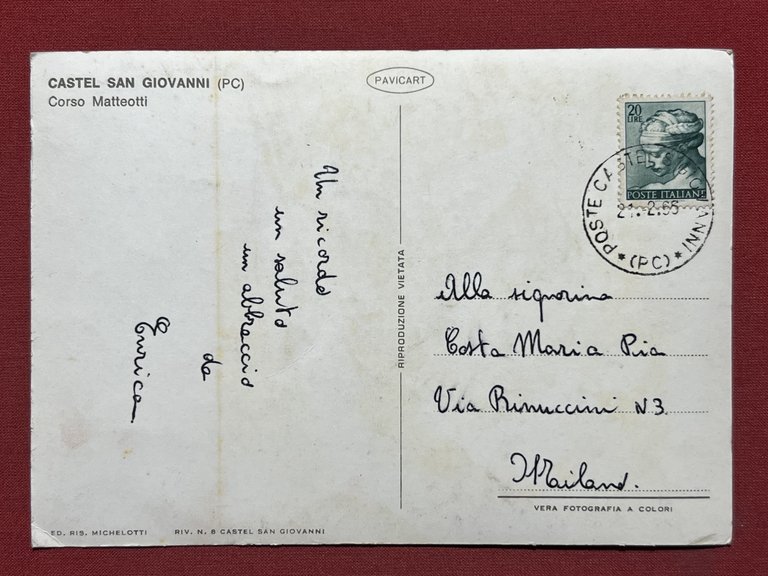 CASTEL SAN GIOVANNI (PC)
Corso Matteotti
PAVICART
20
LIRE
POSTE ITALIANE
POSTE CASTEL S. GIOVANNI
21.-2.66
*(PC)*
Un ricordo
un saluto
un abbraccio
da
Enrica
RIPRODUZIONE VIETATA
Alla signorina
Costa Maria Pia
Via Rinuccini N3
Mailand.
VERA FOTOGRAFIA A COLORI
ED. RIS. MICHELOTTI
RIV. N. 6 CASTEL SAN GIOVANNI